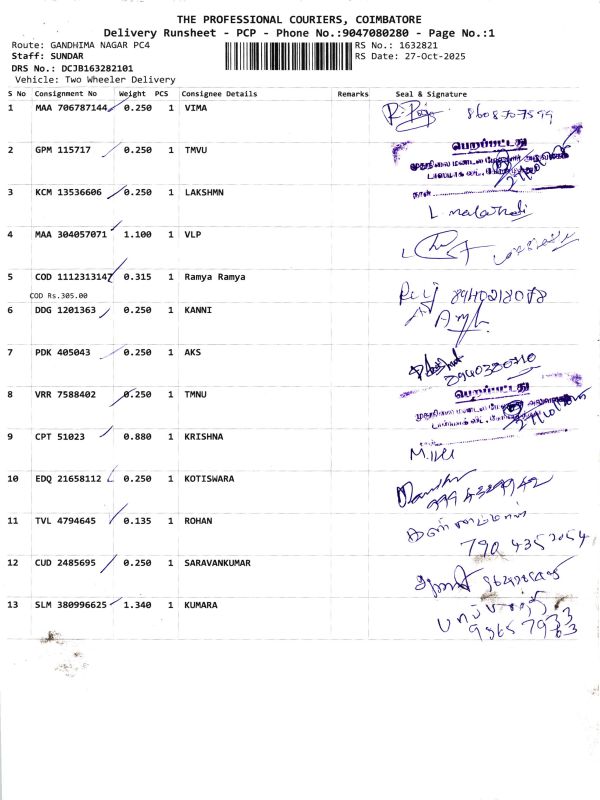 THE PROFESSIONAL COURIERS, COIMBATORE
Delivery Runsheet - PCP - Phone No.:9047080280 - Page No.:1
Route: GANDHIMA NAGAR PC4 RS No.: 1632821
Staff: SUNDAR RS Date: 27-Oct-2025
DRS No.: DCJB163282101
Vehicle: Two Wheeler Delivery
S No Consignment No Weight PCS Consignee Details Remarks Seal & Signature
1 MAA 706787144 0.250 1 VIMA 8608707599
2 GPM 115717 0.250 1 TMVU பெறப்பட்டது
நாள்
3 KCM 13536606 0.250 1 LAKSHMN L. malathi
4 MAA 304057071 1.100 1 VLP
5 COD 1112313147 0.315 1 Ramya Ramya 8940218078
COD Rs.305.00
6 DDG 1201363 0.250 1 KANNI
7 PDK 405043 0.250 1 AKS
8 VRR 7588402 0.250 1 TMNU பெறப்பட்டது
9 CPT 51023 0.880 1 KRISHNA
10 EDQ 21658112 0.250 1 KOTISWARA
11 TVL 4794645 0.135 1 ROHAN
12 CUD 2485695 0.250 1 SARAVANKUMAR
13 SLM 380996625 1.340 1 KUMARA